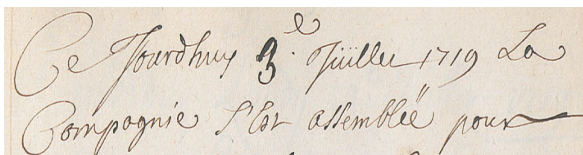 Ce Jourdhuy 3.e Juillet 1719 La
Compagnie s'Est assemblée pour